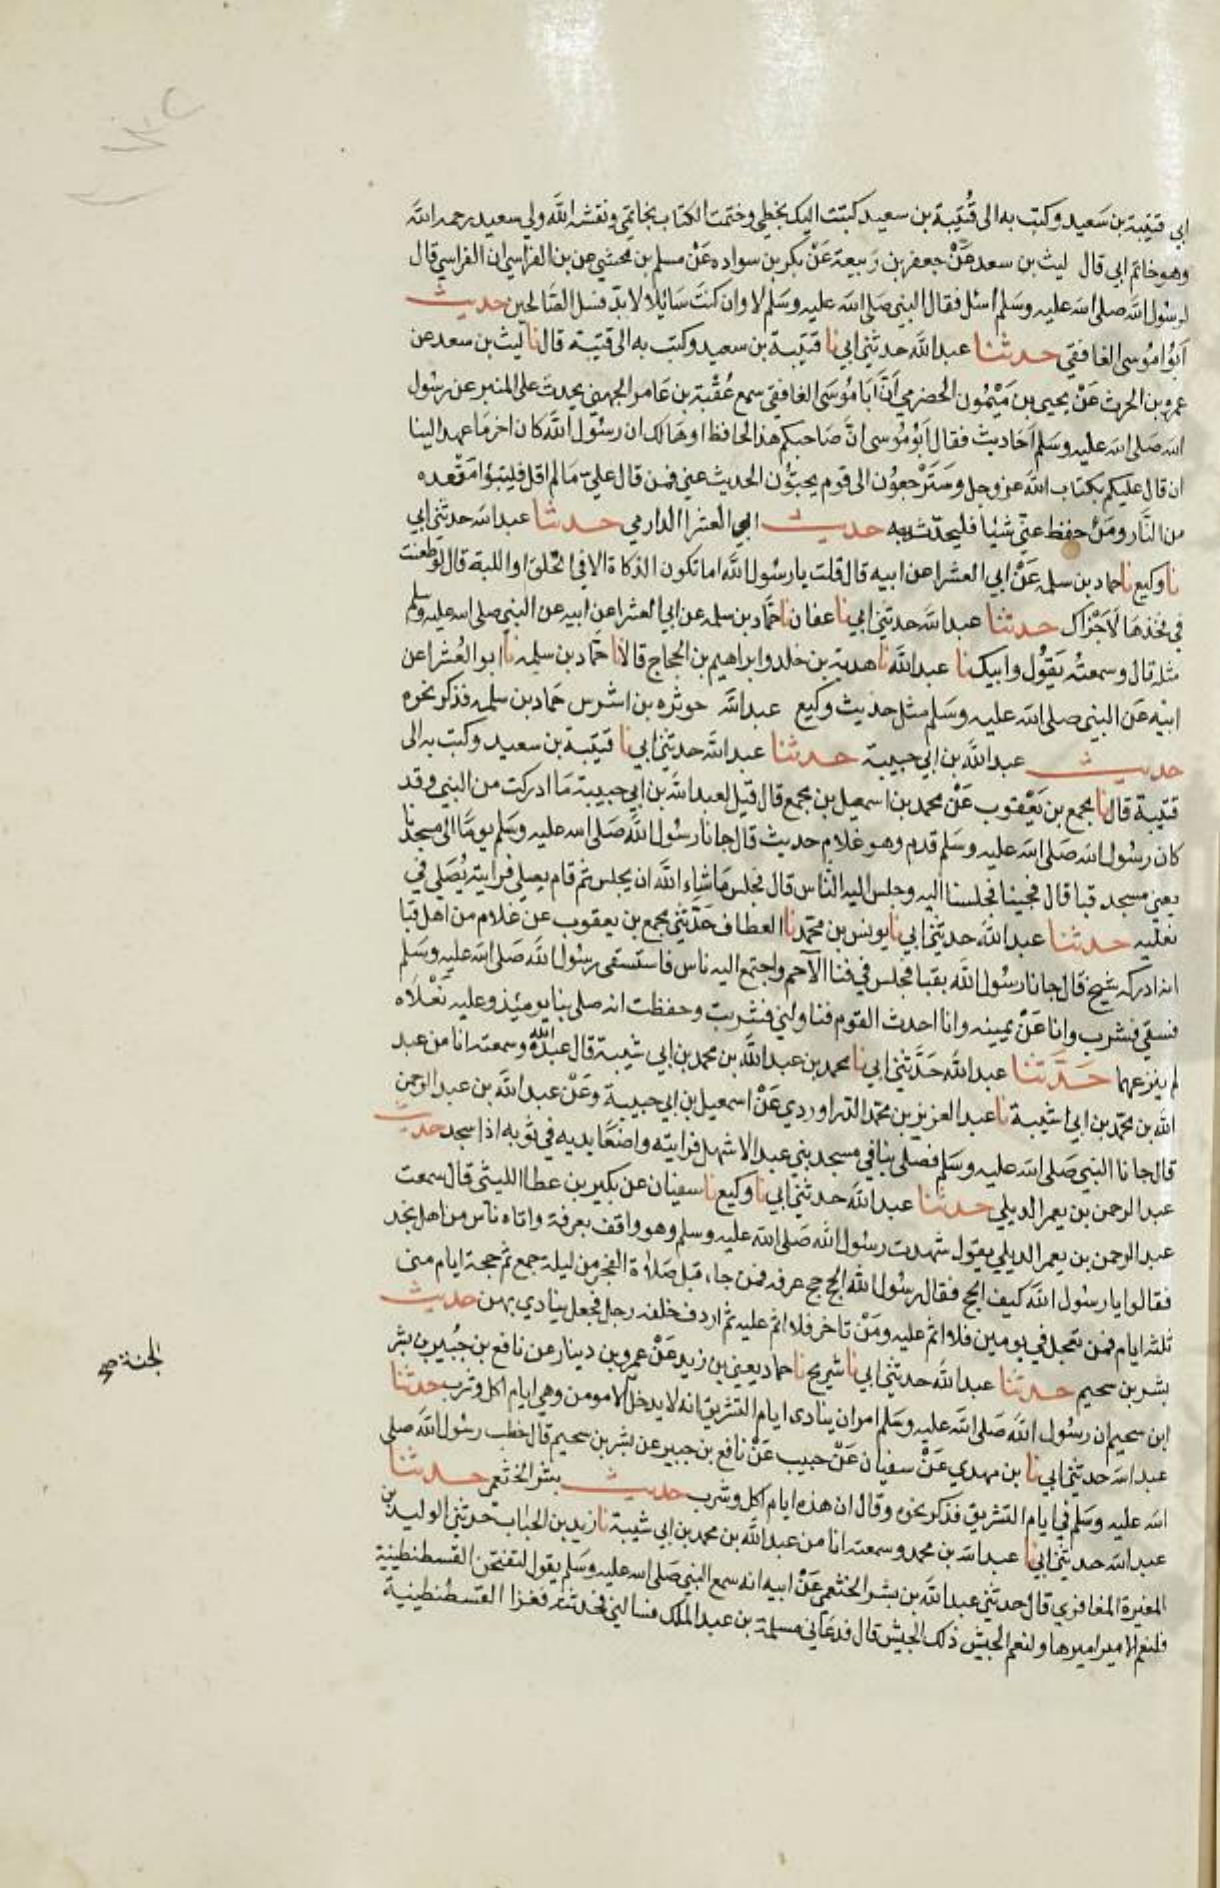 ابي قتيبة بن سعيد وكتب به الى قتيبة بن سعيد كتبت اليك بخطي وختمت الكتاب بخاتمي ونقشه الله ولي سعيد رحمه الله
وهو خاتم ابي قال ليث بن سعد عن جعفر بن ربيعة عن بكر بن سواده عن مسلم بن مخشي عن بن الفراسي ان الفراسي قال
لرسول الله صلى الله عليه وسلم اسئل فقال النبي صلى الله عليه وسلم لا وان كنت سائلا لا بد فسل الصالحين حديث
ابو اموسى الغافقي حدثنا عبد الله حدثني ابي نا قتيبة بن سعيد وكتب به الى قتيبة قال نا ليث بن سعد عن
عمرو بن الحرث عن يحيى بن ميمون الحضرمي ان ابا موسى الغافقي سمع عقبة بن عامر الجهني يحدث على المنبر عن رسول
الله صلى الله عليه وسلم احاديث فقال ابو موسى ان صاحبكم هذا لحافظ او هالك ان رسول الله كان اخر ما عهد الينا
ان قال عليكم بكتاب الله عز وجل وسترجعون الى قوم يحبون الحديث عني فمن قال علي ما لم اقل فليتبؤا مقعده
من النار ومن حفظ عني شيئا فليحدث به حديث ابي العشرا الدارمي حدثنا عبد الله حدثني ابي
نا وكيع نا حماد بن سلمه عن ابي العشرا عن ابيه قال قلت يا رسول الله اما تكون الذكاة الا في الحلق او اللبة قال لو طعنت
في فخذها لاجزاك حدثنا عبد الله حدثني ابي نا عفان نا حماد بن سلمه عن ابي العشرا عن ابيه عن النبي صلى الله عليه وسلم
مثله قال وسمعته يقول وابيك نا عبد الله نا هدبة بن خالد وابراهيم بن الحجاج قالا نا حماد بن سلمه نا ابو العشرا عن
ابيه عن النبي صلى الله عليه وسلم مثل حديث وكيع عبد الله حوثره بن اشرس حماد بن سلمه فذكر نحوه
حديث عبد الله بن ابي حبيبة حدثنا عبد الله حدثني ابي نا قتيبة بن سعيد وكتب به الى
قتيبة قال نا مجمع بن يعقوب عن محمد بن اسمعيل بن مجمع قال قيل لعبد الله بن ابي حبيبة ما ادركت من النبي وقد
كان رسول الله صلى الله عليه وسلم قدم وهو غلام حديث قال جانا رسول الله صلى الله عليه وسلم يوما الى مسجدنا
يعني مسجد قبا قال فجينا فجلسنا اليه وجلس اليه الناس قال فجلس ما شاء الله ان يجلس ثم قام يصلي فرايته يصلي في
نعليه حدثنا عبد الله حدثني ابي نا يونس بن محمد نا العطاف حدثني مجمع بن يعقوب عن غلام من اهل قبا
انه ادركه شيخ قال جانا رسول الله بقبا فجلس في فنا الاحم واجتمع اليه ناس فاستسقى رسول الله صلى الله عليه وسلم
فسقي فشرب وانا عن يمينه وانا احدث القوم فناولني فشربت وحفظت انه صلى بنا يومئذ وعليه نعلاه
لم ينزعهما حدثنا عبد الله حدثني ابي نا محمد بن عبد الله بن محمد بن ابي شيبة قال عبد الله وسمعته انا من عبد
الله بن محمد بن ابي شيبة نا عبد العزيز بن محمد الدراوردي عن اسمعيل بن ابي حبيبة وعن عبد الله بن عبد الرحمن
قال جانا النبي صلى الله عليه وسلم فصلى بنا في مسجد بني عبد الاشهل فرايته واضعا يديه في ثوبه اذا سجد حديث
عبد الرحمن بن يعمر الديلي حدثنا عبد الله حدثني ابي نا وكيع نا سفيان عن بكير بن عطا الليثي قال سمعت
عبد الرحمن بن يعمر الديلي يقول شهدت رسول الله صلى الله عليه وسلم وهو واقف بعرفة واتاه ناس من اهل نجد
فقالوا يا رسول الله كيف الحج فقال رسول الله الحج حج عرفه فمن جاء قبل صلاة الفجر من ليلة جمع تم حجه ايام منى
ثلثه ايام فمن تعجل في يومين فلا اثم عليه ومن تاخر فلا اثم عليه ثم اردف خلفه رجل فجعل ينادي بهن حديث
بشر بن سحيم حدثنا عبد الله حدثني ابي نا شريح نا حماد يعني بن زيد عن عمرو بن دينار عن نافع بن جبير بن بشر
ابن سحيم ان رسول الله صلى الله عليه وسلم امر ان ينادى ايام التشريق انه لا يدخل الا مومن وهي ايام اكل وشرب حدثنا
الجنة صح
عبد الله حدثني ابي نا بن مهدي عن سفيان عن حبيب عن نافع بن جبير عن بشر بن سحيم قال خطب رسول الله صلى
الله عليه وسلم في ايام التشريق فذكر نحوه وقال ان هذه ايام اكل وشرب حديث بشر الخثعمي حدثنا
عبد الله حدثني ابي نا عبد الله بن محمد وسمعته انا من عبد الله بن محمد بن ابي شيبة نا زيد بن الحباب حدثني الوليد بن
المغيرة المغافري قال حدثني عبد الله بن بشر الخثعمي عن ابيه انه سمع النبي صلى الله عليه وسلم يقول لتفتحن القسطنطينية
فلنعم الامير اميرها ولنعم الجيش ذلك الجيش قال فدعاني مسلمة بن عبد الملك فسالني فحدثته فغزا القسطنطينية